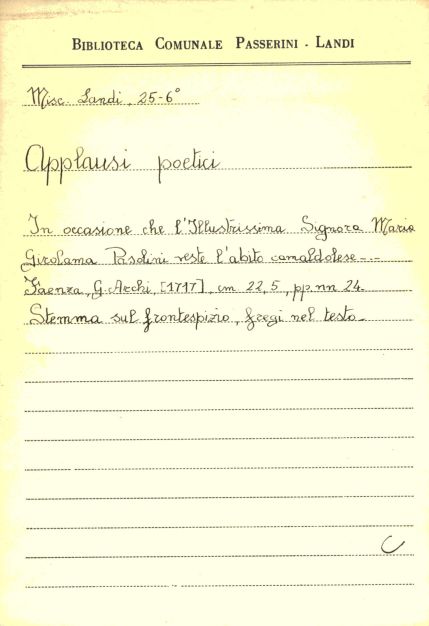 BIBLIOTECA COMUNALE PASSERINI - LANDI
Misc. Landi, 25-6°
Applausi poetici
In occasione che l'Illustrissima Signora Maria
Girolama Pasolini veste l'abito camaldolese...
Faenza, G. Archi, [1717], cm 22,5, pp. nn 24.
Stemma sul frontespizio, fregi nel testo.
C